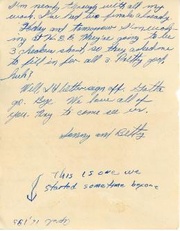 I'm nearly through with all my
work. I've had two finals already.
Today and tomorrow I'm work-
ing at H.B.B. They're going to be
3 short about so they asked me
to fill in for all 3. Pretty good,
huh!
Well, I'd better sign off. Gotta
go. Bye. We love all of
you. Try to come see us.
Sonny and Betty
This is one we
started sometime before